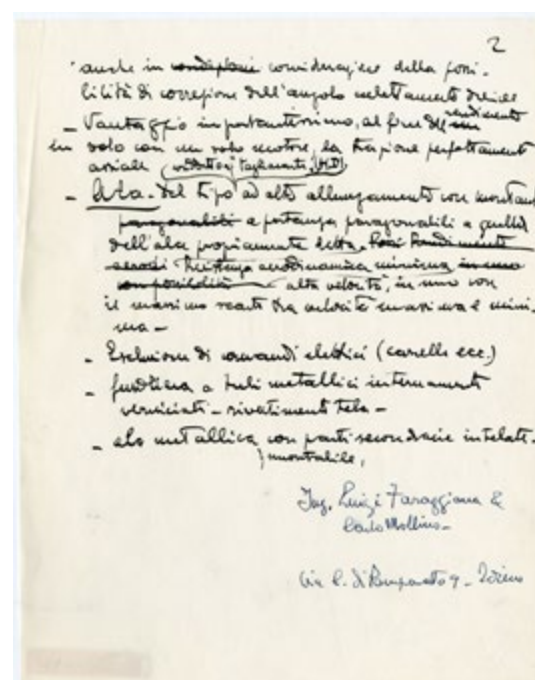 2
anche in condizioni considerazione della possi-
bilità di correzione dell'angolo
- Vantaggio importantissimo, al fine del rendimento
in volo con un solo motore, la trazione perfettament
assiale
- Ala - Del tipo ad alto allungamento con montant
paragonabili a portanza paragonabili a quella
dell'ala propiamente detta.
Resistenza aerodinamica minima in uno
alta velocità, in uno con
il massimo scarto tra velocità massima e mini-
ma -
- Esclusione di comandi elettrici (carrello ecc.)
- fusoliera a tubi metallici internamente
verniciati - rivestimento tela -
- ala metallica con parti secondarie intelate.
smontabile,
Ing. Luigi Faraggiana &
Carlo Mollino -
Via - Torino